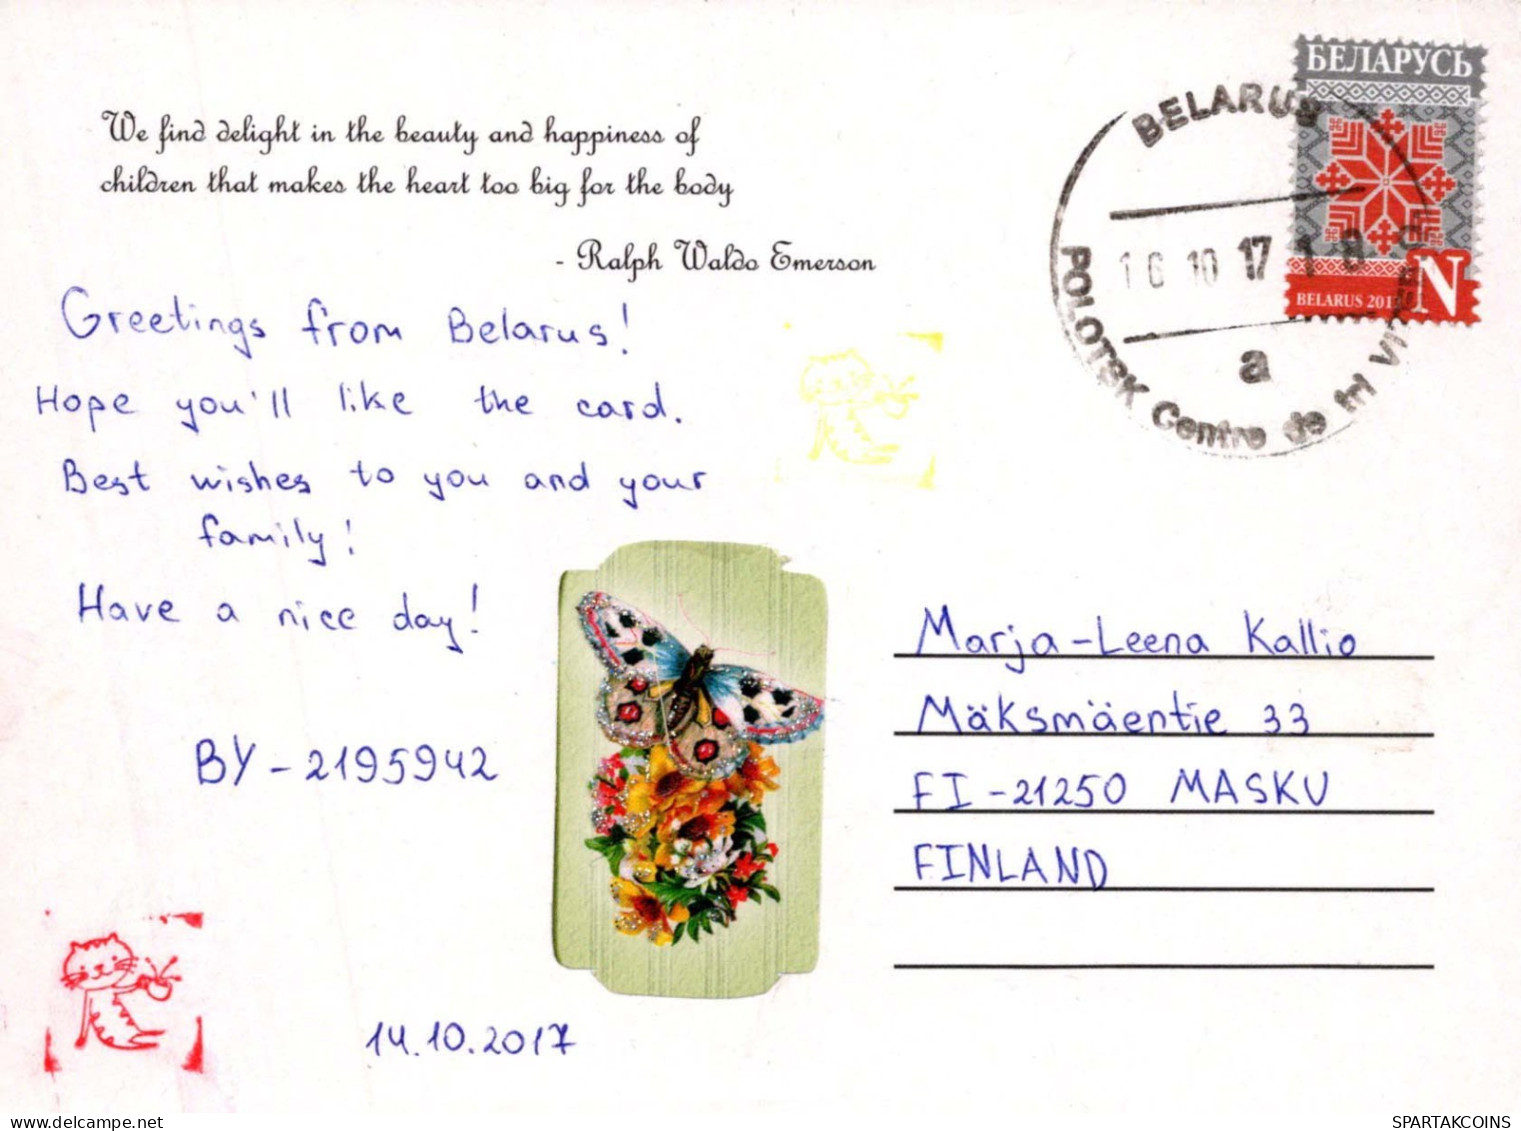 We find delight in the beauty and happiness of
children that makes the heart too big for the body
- Ralph Waldo Emerson
Greetings from Belarus!
Hope you'll like the card.
Best wishes to you and your
family!
Have a nice day!
BY-2195942
14.10.2017
БЕЛАРУСЬ
BELARUS 201
N
BELARUS
16 10 17 18
a
POLOTSK Centre de tri
Marja-Leena Kallio
Mäksmäentie 33
FI-21250 MASKU
FINLAND
SPARTAKCOINS